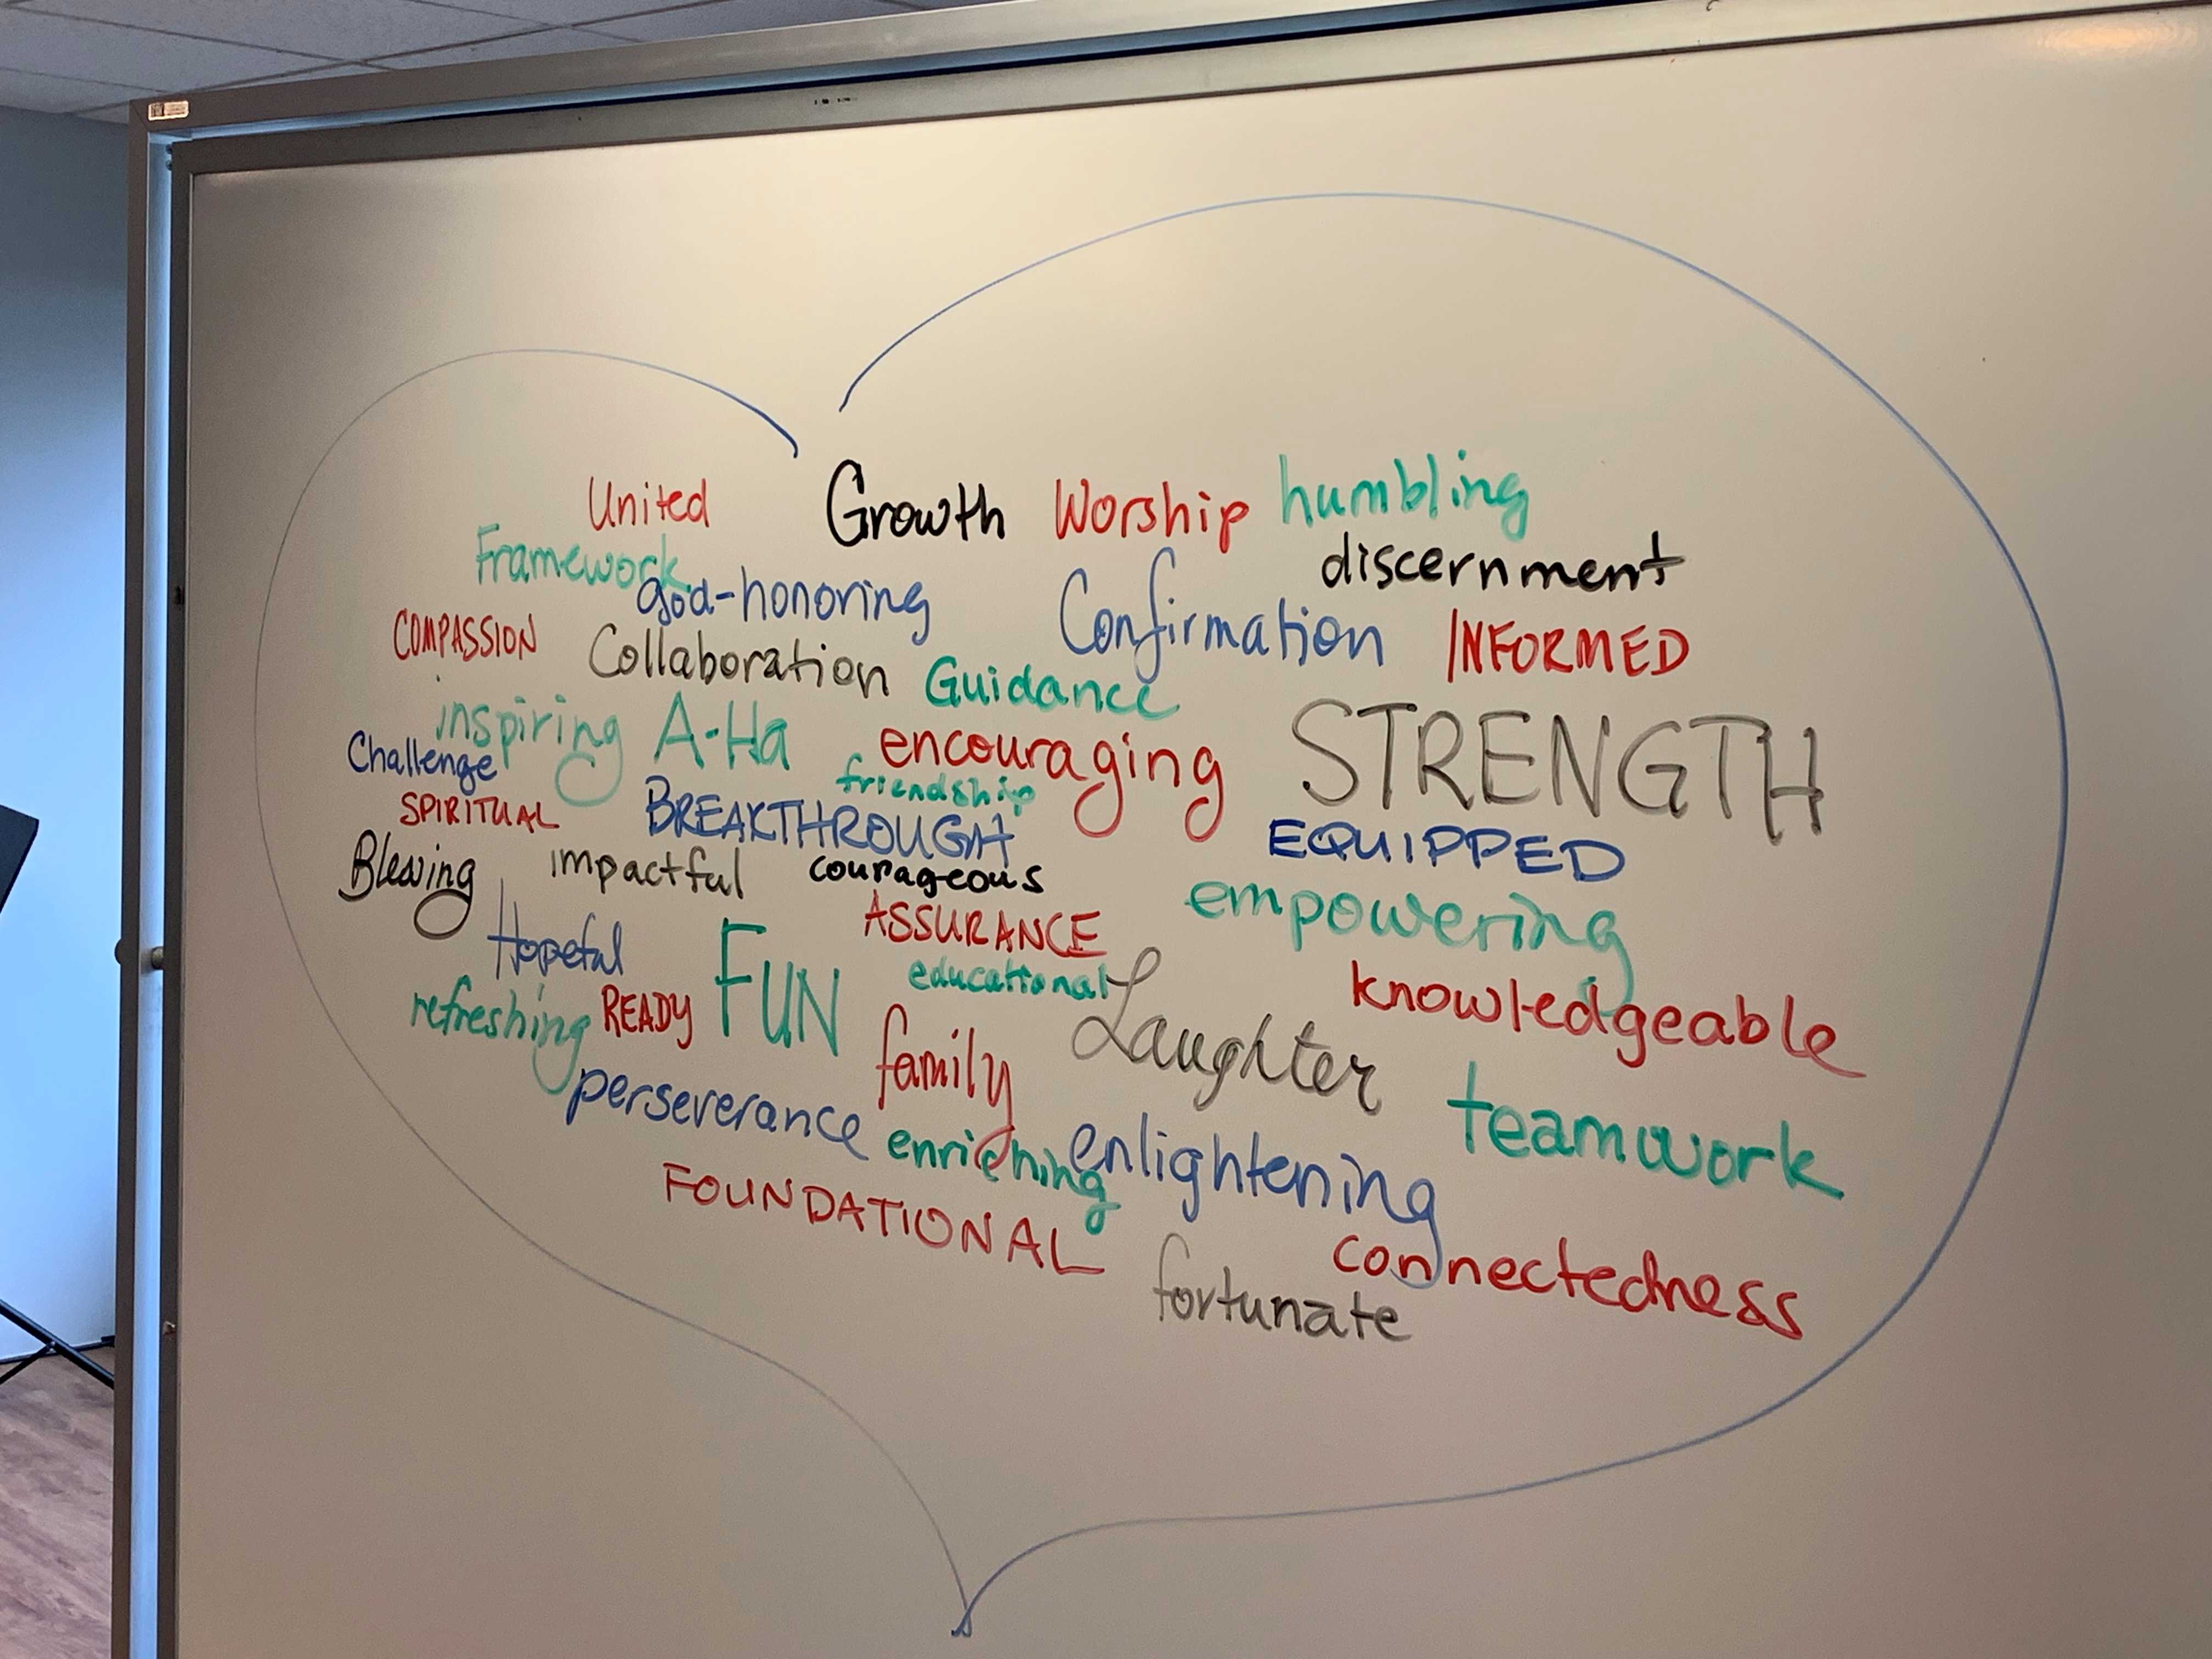 United Growth Worship humbling
Framework discernment
god-honoring Confirmation
COMPASSION Collaboration INFORMED
Guidance
inspiring A-Ha encouraging STRENGTH
Challenge friendship
SPIRITUAL BREAKTHROUGH EQUIPPED
Blessing impactful courageous empowering
Hopeful ASSURANCE
FUN educational knowledgeable
refreshing READY family Laughter
perseverance teamwork
enriching enlightening
FOUNDATIONAL connectedness
fortunate